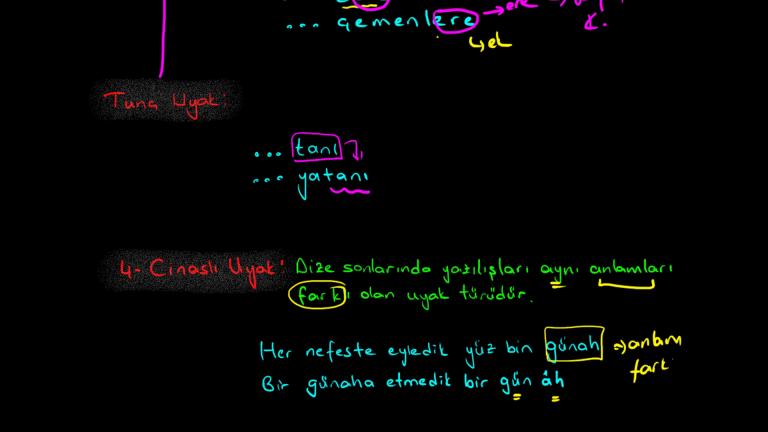 ... çemenlere → ere
↳ ek
Tunç Uyak:
... tanı
... yatanı
4- Cinaslı Uyak: Dize sonlarında yazılışları aynı anlamları
farkı olan uyak türüdür.
Her nefeste eyledik yüz bin günah ⇒ anlam
fark
Bir günaha etmedik bir gün âh